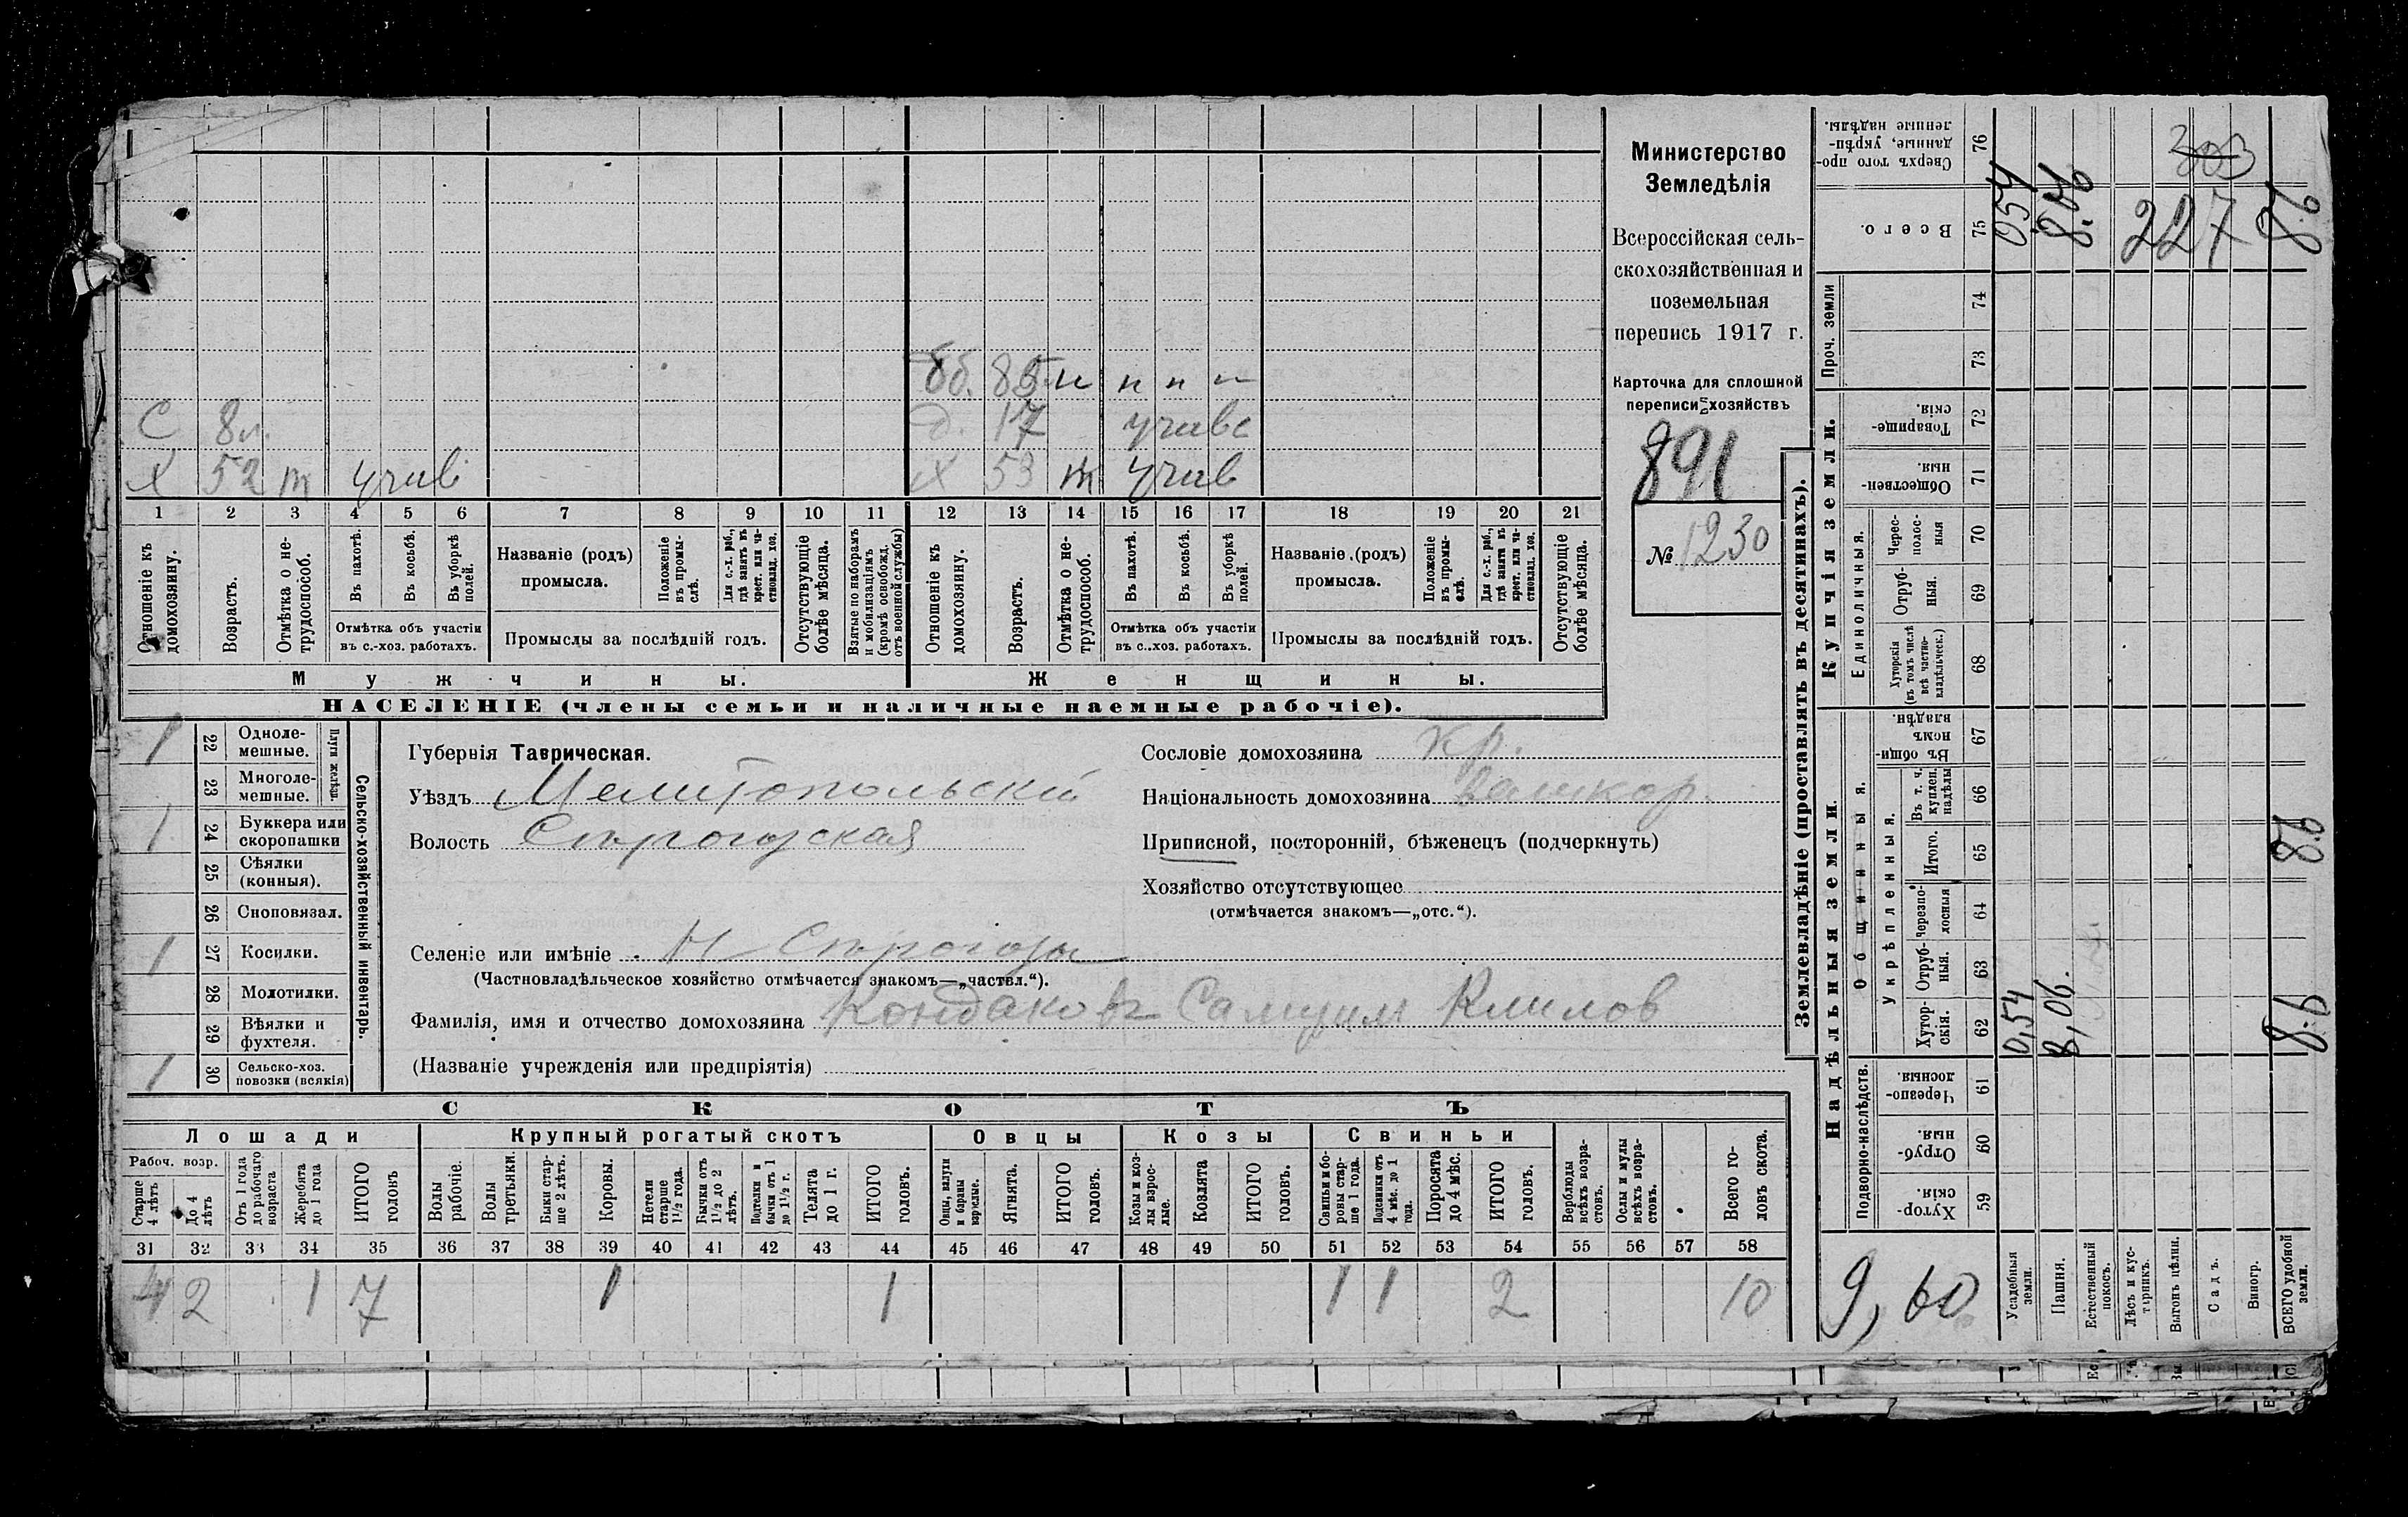 бб. 85 н н н н
С 8 л.
д. 17 участв
х 52 т участ
х 53 т участ
1 2 3 4 5 6 7 8 9 10 11 12 13 14 15 16 17 18 19 20 21
Отношеніе къ домохозяину.
Возрастъ.
Отмѣтка о не-трудоспособ.
Въ пахотѣ.
Въ косьбѣ.
Въ уборкѣ полей.
Отмѣтка объ участіи
въ с.-хоз. работахъ.
Названіе (родъ)
промысла.
Положеніе въ промы-слѣ.
Для с.-х. раб., гдѣ занятъ въ крест. или ча-стновлад. хоз.
Промыслы за послѣдній годъ.
Отсутствующіе болѣе мѣсяца.
Взятые по наборамъ и мобилизаціямъ (кромѣ освобожд. отъ военной службы)
Отношеніе къ домохозяину.
Возрастъ.
Отмѣтка о не-трудоспособ.
Въ пахотѣ.
Въ косьбѣ.
Въ уборкѣ полей.
Отмѣтка объ участіи
въ с.-хоз. работахъ.
Названіе (родъ)
промысла.
Положеніе въ промы-слѣ.
Для с.-х. раб., гдѣ занята въ крест. или ча-стновлад. хоз.
Промыслы за послѣдній годъ.
Отсутствующіе болѣе мѣсяца.
Мужчины.
Женщины.
НАСЕЛЕНІЕ (члены семьи и наличные наемные рабочіе).
Министерство
Земледѣлія
Всероссійская сель-
скохозяйственная и
поземельная
перепись 1917 г.
Карточка для сплошной
переписи хозяйствъ
891
№ 1230
1 22 Одноле-мешные.
23 Многоле-мешные.
Плуги желѣзн.
1 24 Буккера или скоропашки
25 Сѣялки (конныя).
26 Сноповязал.
1 27 Косилки.
28 Молотилки.
29 Вѣялки и фухтеля.
1 30 Сельско-хоз. повозки (всякія)
Сельско-хозяйственный инвентарь.
Губернія Таврическая.
Уѣздъ Мелитопольскій
Волость Строгозская
Селеніе или имѣніе Н Строгозы
(Частновладѣльческое хозяйство отмѣчается знакомъ—„частвл.“).
Фамилія, имя и отчество домохозяина Кондаковъ
(Названіе учрежденія или предпріятія)
Сословіе домохозяина кр.
Національность домохозяина
Приписной, посторонній, бѣженецъ (подчеркнуть)
Хозяйство отсутствующее
(отмѣчается знакомъ—„отс.“).
СКОТЪ
Лошади
Крупный рогатый скотъ
Овцы
Козы
Свиньи
Рабоч. возр.
Старше 4 лѣтъ
До 4 лѣтъ
Отъ 1 года до рабочаго возраста
Жеребята до 1 года
ИТОГО головъ
Волы рабочіе.
Волы третьяки.
Быки стар-ше 2 лѣтъ.
Коровы.
Нетели старше 1½ года.
Бычки отъ 1½ до 2 лѣтъ.
Подтелки и бычки отъ 1 до 1½ г.
Телята до 1 г.
ИТОГО головъ.
Овцы, валухи и бараны взрослые.
Ягнята.
ИТОГО головъ.
Козы и коз-лы взрос-лые.
Козлята
ИТОГО головъ.
Свиньи и бо-ровы стар-ше 1 года.
Подсвинки отъ 4 мѣс. до 1 года.
Поросята до 4 мѣс.
ИТОГО головъ.
Верблюды всѣхъ возра-стовъ.
Ослы и мулы всѣхъ возра-стовъ.
Всего го-ловъ скота.
31 32 33 34 35 36 37 38 39 40 41 42 43 44 45 46 47 48 49 50 51 52 53 54 55 56 57 58
4 2 1 7 1 1 1 1 2 10
Землевладѣніе (проставлять въ десятинахъ).
Купчія земли.
Надѣльныя земли.
Сверхъ того про-данные, укрѣп-ленные надѣлы. 76
303
Всего. 75
054 8.06 227 8.6
Проч. земли
74
73
Товарище-скія. 72
Обществен-ныя. 71
Единоличныя.
Черес-полос-ныя 70
Отруб-ныя. 69
Хуторскія (въ томъ числѣ всѣ частно-владѣльческ.) 68
Общинныя.
Въ общи-номъ владѣн. 67
Укрѣпленныя.
Въ т. ч. куплен. надѣлы 66
Итого. 65
8.6
черезпо-лосныя 64
Отруб-ныя. 63
Хутор-скія. 62
0,54 8,06. 8.6
Подворно-наслѣдств.
Черезпо-лосныя. 61
Отруб-ныя. 60
Хутор-скія. 59
9,60
Усадебныя земли.
Пашня.
Естественный покосъ.
Лѣсъ и кус-тарникъ.
Выгонъ цѣлин.
Садъ.
Виногр.
ВСЕГО удобной земли.